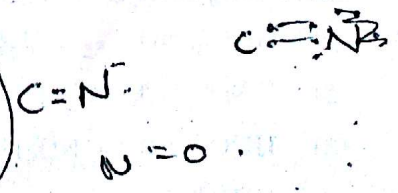 C::N:
C=N-
N=O.